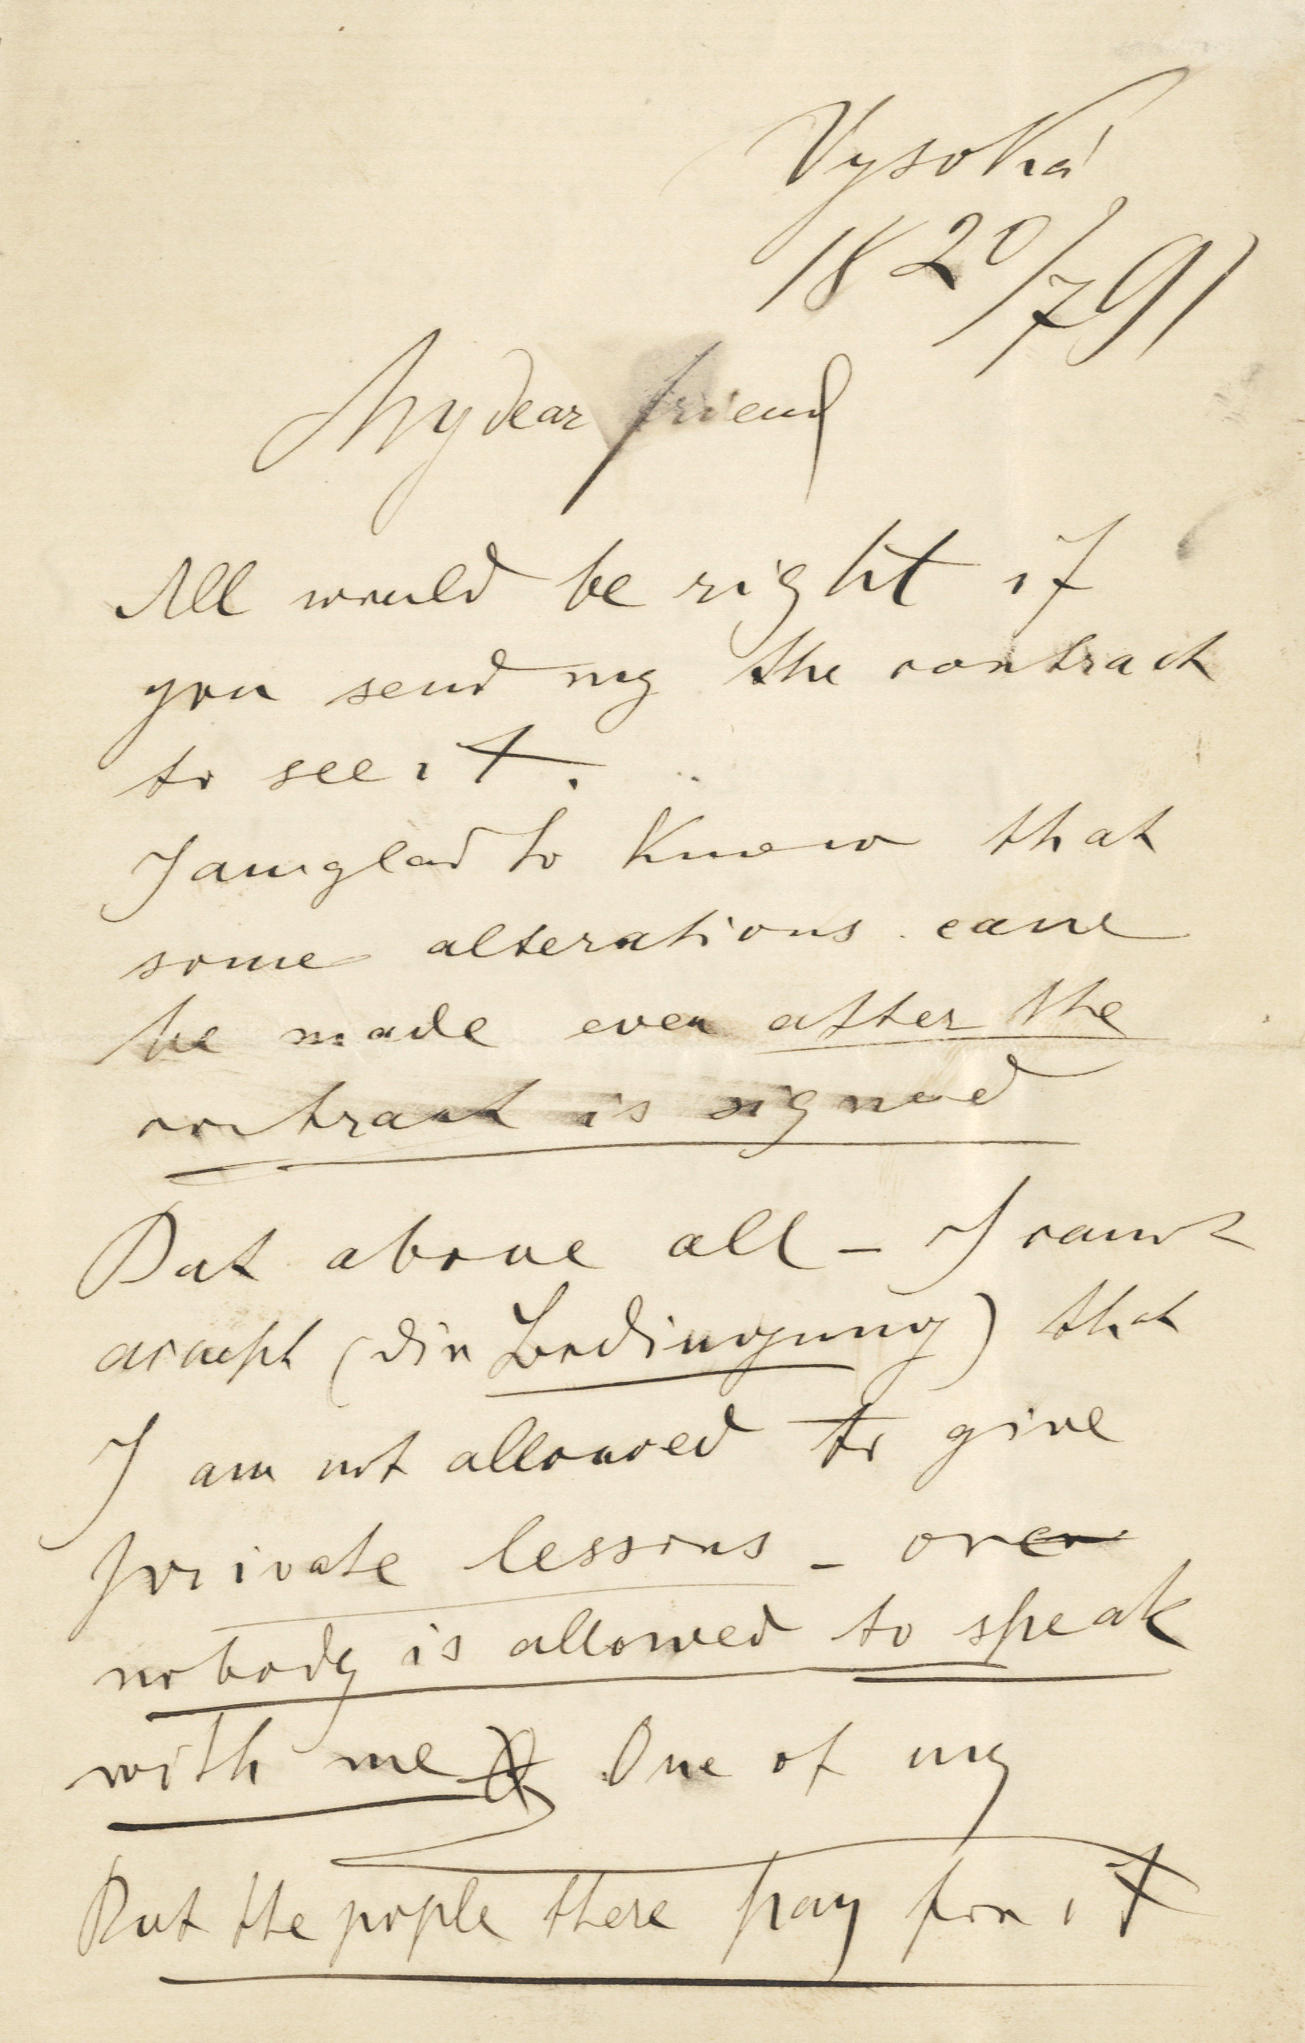 Vysoká
18 20/7 91
My dear friend
All would be right if
you send my the contract
to see it.
I am glad to know that
some alterations cane
be made even after the
contract is signed
But above all - I can't
accept (die Bedingung) that
I am not allowed to give
private lessons - over
nobody is allowed to speak
with me One of my
But the pople there pay for it